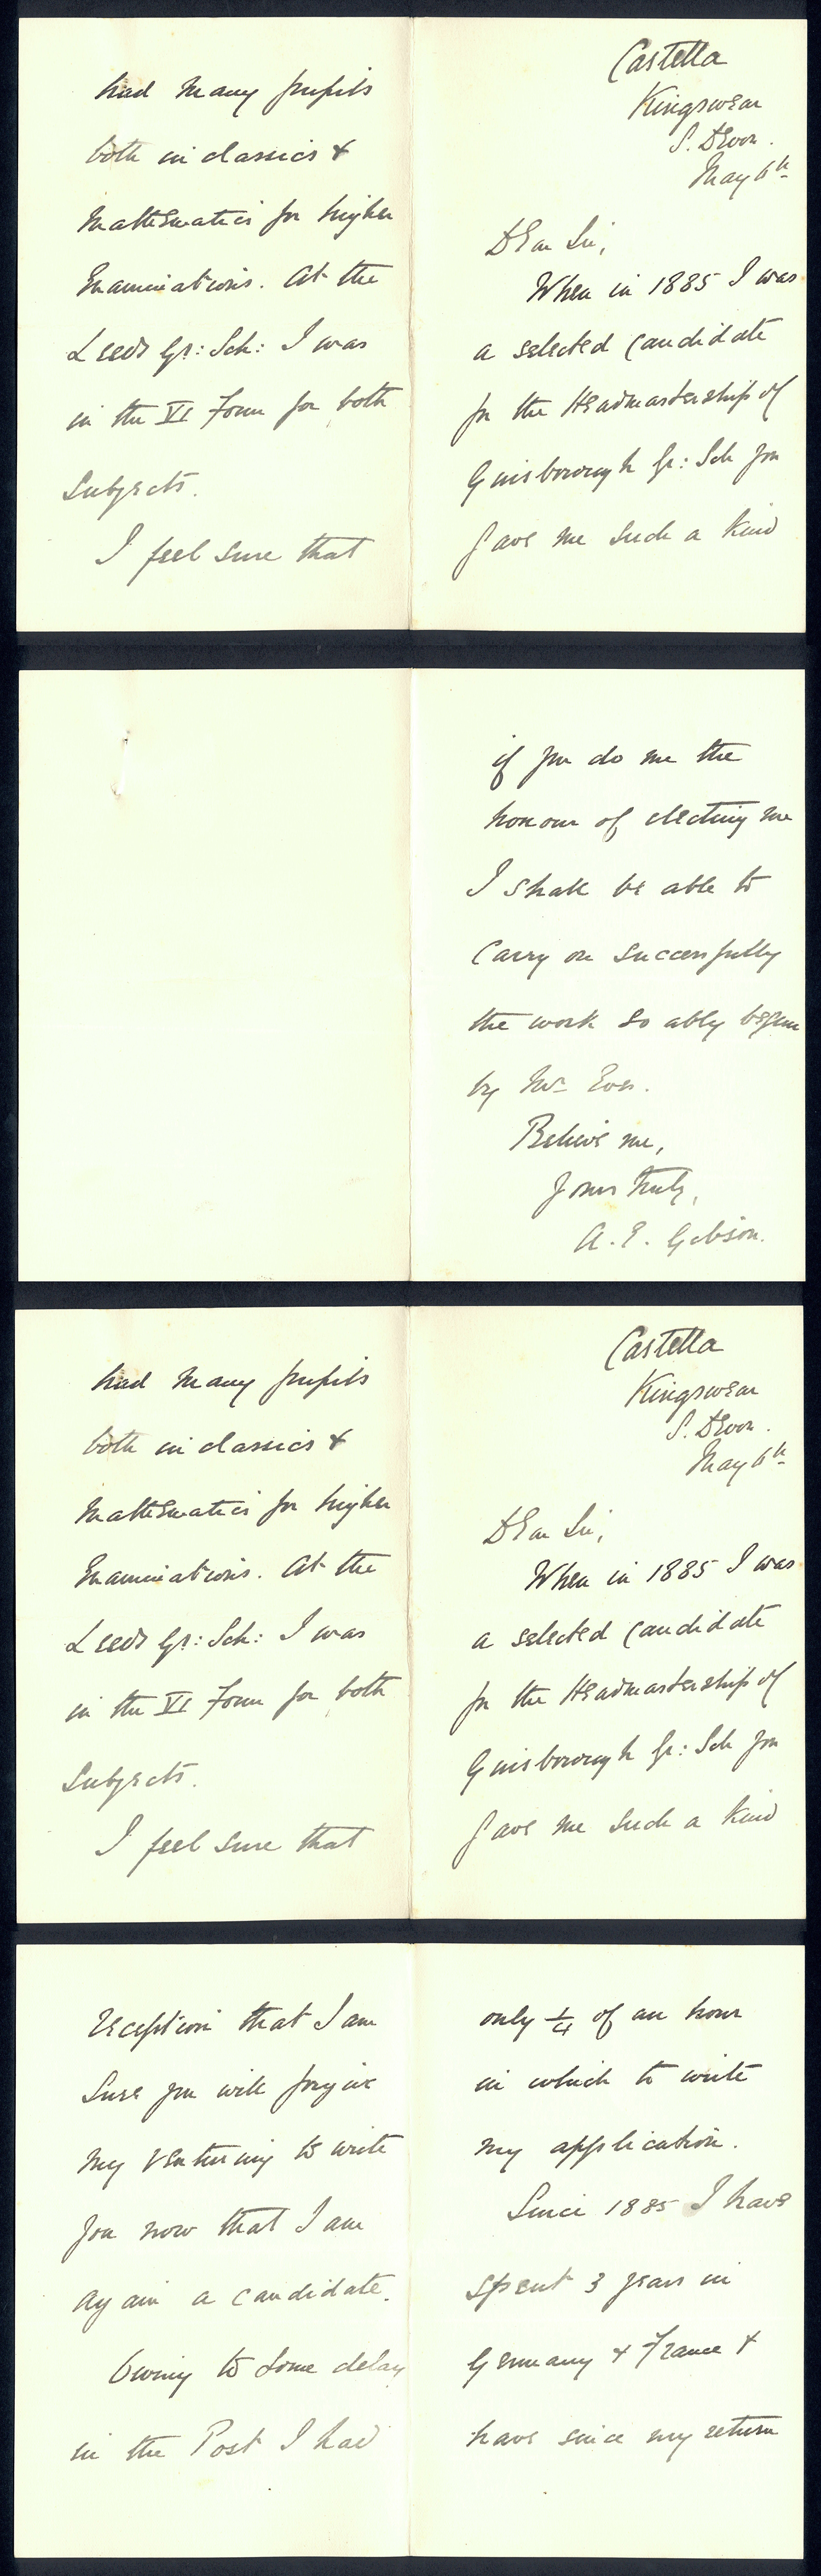 had many pupils
both in classics &
Mathematics for higher
Examinations. At the
Leeds Gr: Sch: I was
in the VI Form for both
subjects.
I feel sure that
Castella
Kingswear
S. Devon.
May 6th
Dear Sir,
When in 1885 I was
a selected candidate
for the Headmastership of
Guisborough Gr: Sch you
gave me such a kind
if you do me the
honour of electing me
I shall be able to
carry on successfully
the work so ably begun
by Mr
Believe me,
Yours truly,
A. E. Gibson.
had many pupils
both in classics &
Mathematics for higher
Examinations. At the
Leeds Gr: Sch: I was
in the VI Form for both
subjects.
I feel sure that
Castella
Kingswear
S. Devon.
May 6th
Dear Sir,
When in 1885 I was
a selected candidate
for the Headmastership of
Guisborough Gr: Sch you
gave me such a kind
reception that I am
sure you will forgive
my venturing to write
you now that I am
again a candidate.
Owing to some delay
in the Post I had
only 1/4 of an hour
in which to write
my application.
Since 1885 I have
spent 3 years in
Germany & France &
have since my return